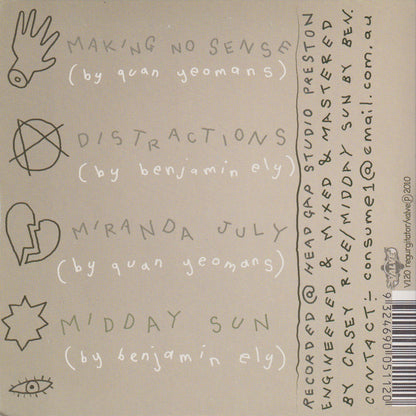 MAKING NO SENSE
(by quan yeomans)
DISTRACTIONS
(by benjamin ely)
MIRANDA JULY
(by quan yeomans)
MIDDAY SUN
(by benjamin ely)
RECORDED @ HEAD GAP STUDIO PRESTON
ENGINEERED & MIXED & MASTERED
BY CASEY RICE/MIDDAY SUN BY BEN.
CONTACT:- consume1@email.com.au
V120 regurgitator/valve ℗ 2010
9 324690 051120